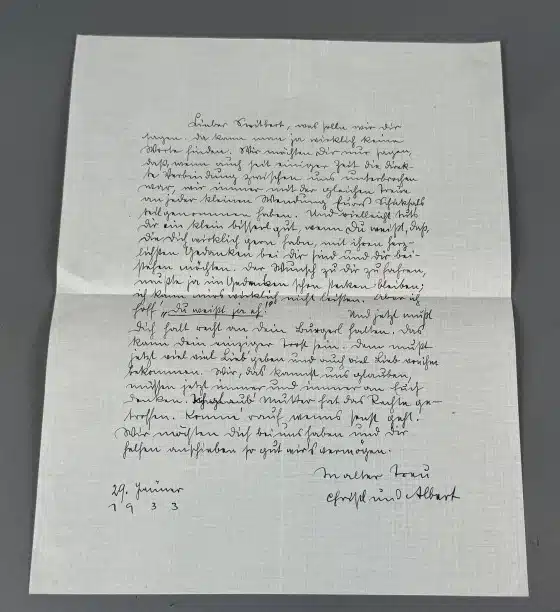 Lieber Switbert, was solln wir dir
sagen. da kann man ja wirklich keine
Worte finden. Wir möchten Dir nur sagen,
daß, wenn auch seit einiger Zeit die direk-
te Verbindung zwischen uns unterbrochen
war, wir immer mit der gleichen Treue
an jeder kleinen Wendung Eures Schicksals
teilgenommen haben. Und vielleicht tuts
dir ein klein bisserl gut, wenn Du weißt, daß,
die Dich wirklich gern habn, mit ihren herz-
lichsten Gedanken bei dir sind und dir bei-
stehen möchten. Der Wunsch zu dir zu fahren,
mußte ja im Gedanken schon stecken bleiben;
ich kann mirs wirklich nicht leisten. Aber ich
hoff' „Du weißt ja eh!" Und jetzt mußt
Dich halt recht an dein Burgerl halten. Das
kann dein einziger Trost sein. Dem mußt
jetzt viel viel Lieb geben und auch viel Lieb von ihm
bekommen. Wir, das kannst uns glauben,
müssen jetzt immer und immer an Euch
denken. Ich glaub' Mutter hat das Rechte ge-
troffen. Komme rauf, wenns sonst geht.
Wir möchten Dich bei uns haben und dir
helfen so gut wirs vermögen.
In alter Treu
Christl und Albert
29. Jänner
1933